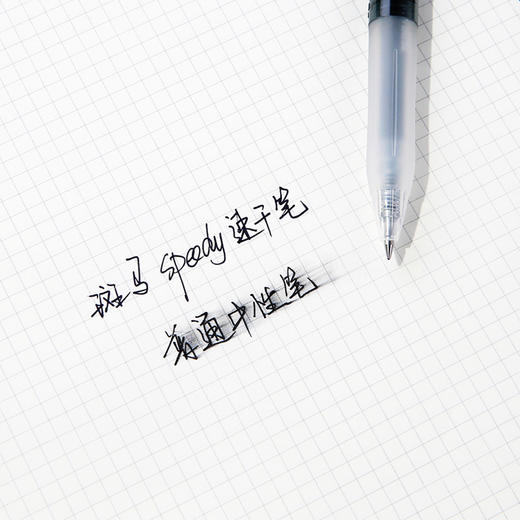 斑马 speedy 速干笔
普通中性笔